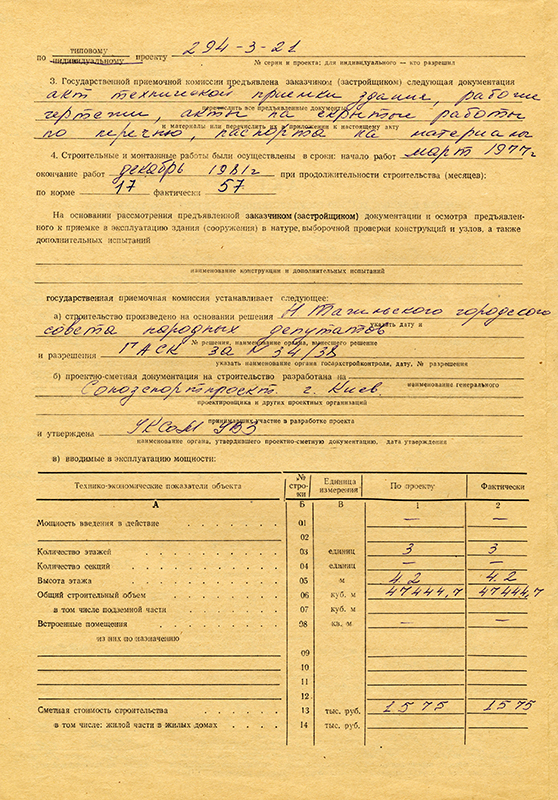 типовому
по индивидуальному проекту 294-3-21
№ серии и проекта; для индивидуального — кто разрешил
3. Государственной приемочной комиссии предъявлена заказчиком (застройщиком) следующая документация
акт технической приемки здания, рабочие
перечислить все предъявленные документы
чертежи, акты на скрытые работы
и материалы или перечислить их в приложении к настоящему акту
по перечню, паспорта на материалы
4. Строительные и монтажные работы были осуществлены в сроки: начало работ март 1977г
окончание работ декабрь 1981г при продолжительности строительства (месяцев):
по норме 17 фактически 57
На основании рассмотрения предъявленной заказчиком (застройщиком) документации и осмотра предъявлен-
ного к приемке в эксплуатацию здания (сооружения) в натуре, выборочной проверки конструкций и узлов, а также
дополнительных испытаний
наименование конструкции и дополнительных испытаний
государственная приемочная комиссия устанавливает следующее:
а) строительство произведено на основании решения Н Тагильского городского
указать дату и
совета народных депутатов
№ решения, наименование органа, вынесшего решение
и разрешения ГАСК за N 34/38
указать наименование органа госархстройконтроля, дату, № разрешения
б) проектно-сметная документация на строительство разработана на
наименование генерального
Союзспортпроект. г. Киев.
проектировщика и других проектных организаций
принимавших участие в разработке проекта
и утверждена УКСом УВЗ
наименование органа, утвердившего проектно-сметную документацию, дата утверждения
в) вводимые в эксплуатацию мощности:
Технико-экономические показатели объекта № стро-ки Единица измерения По проекту Фактически
А Б В 1 2
Мощность введения в действие 01 — —
02
Количество этажей 03 единиц 3 3
Количество секций 04 единиц — —
Высота этажа 05 м 4.2 4.2
Общий строительный объем 06 куб. м 47444,7 47444,7
в том числе подземной части 07 куб. м
Встроенные помещения 08 кв. м
из них по назначению
09
10
11
12
Сметная стоимость строительства 13 тыс. руб. 1575 1575
в том числе: жилой части в жилых домах 14 тыс. руб.